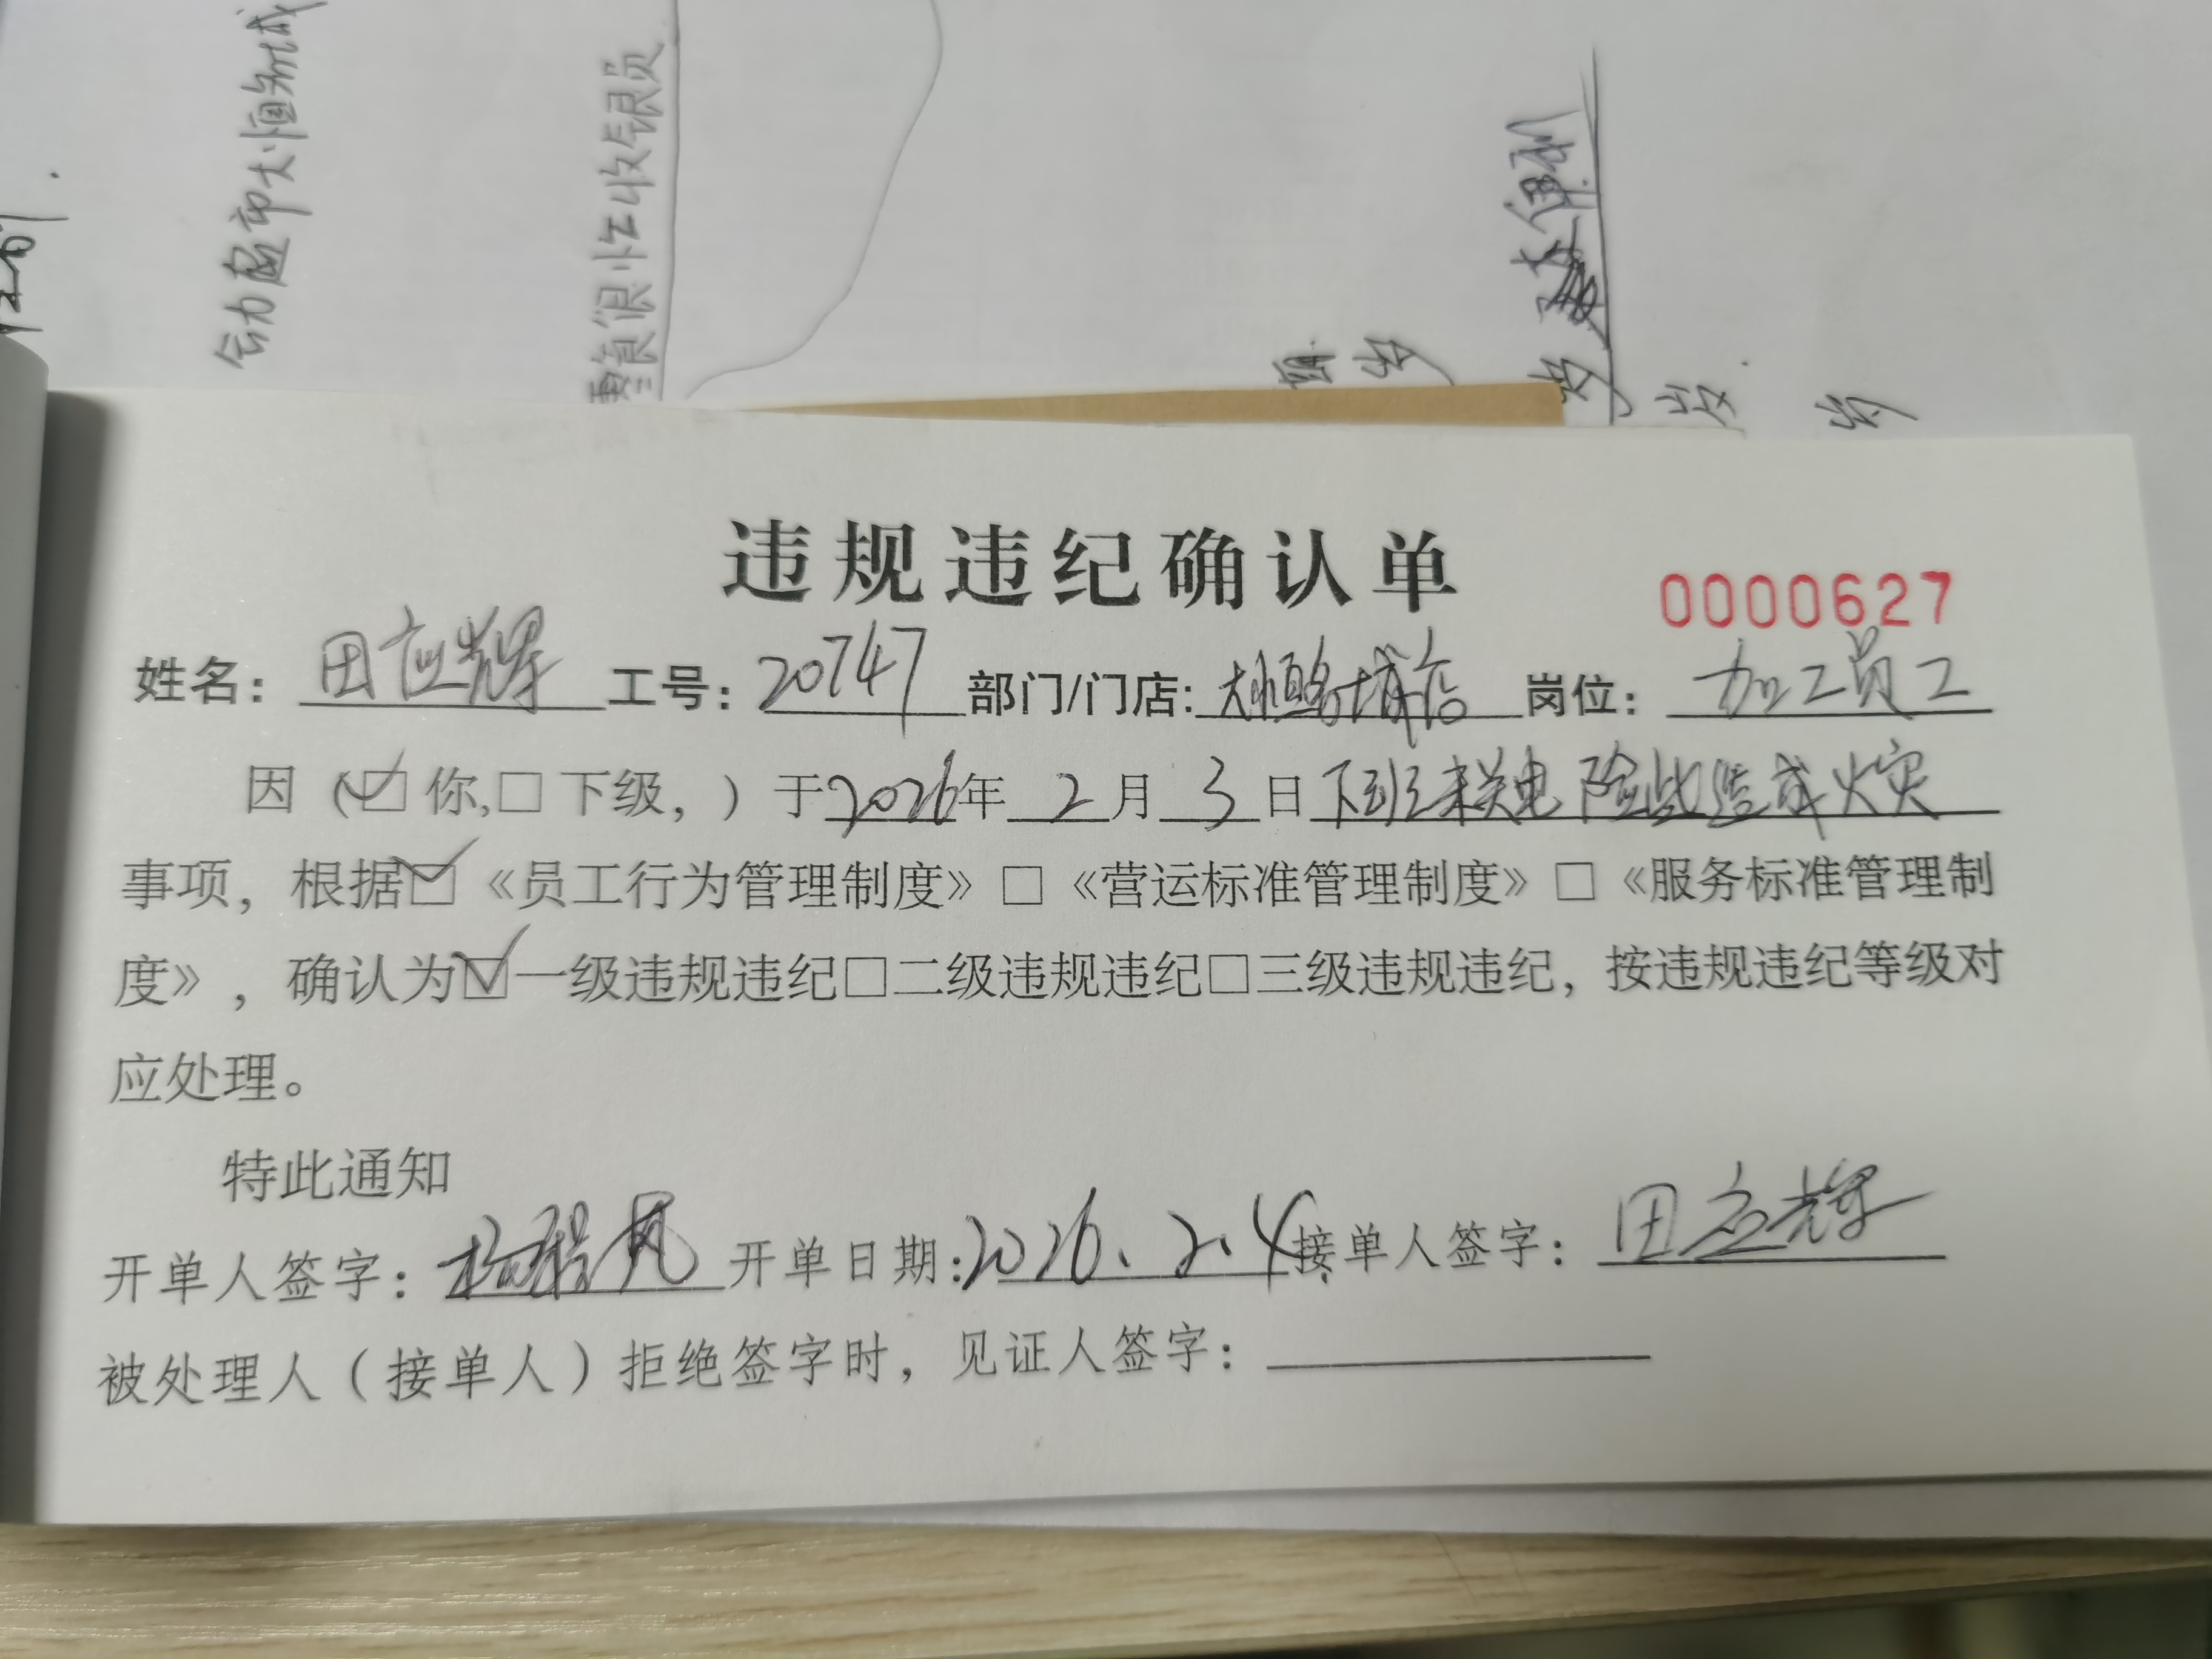 合力超市大恒知城
重慎很忙收银员
违规违纪确认单
0000627
姓名：田应辉 工号：20747 部门/门店：大恒知城店 岗位：加工员工
因（☑你,□下级，）于2026年2月3日下班未关电险些造成火灾
事项，根据☑《员工行为管理制度》□《营运标准管理制度》□《服务标准管理制
度》，确认为☑一级违规违纪□二级违规违纪□三级违规违纪，按违规违纪等级对
应处理。
特此通知
开单人签字： 开单日期：2026.2.4 接单人签字：田应辉
被处理人（接单人）拒绝签字时，见证人签字：